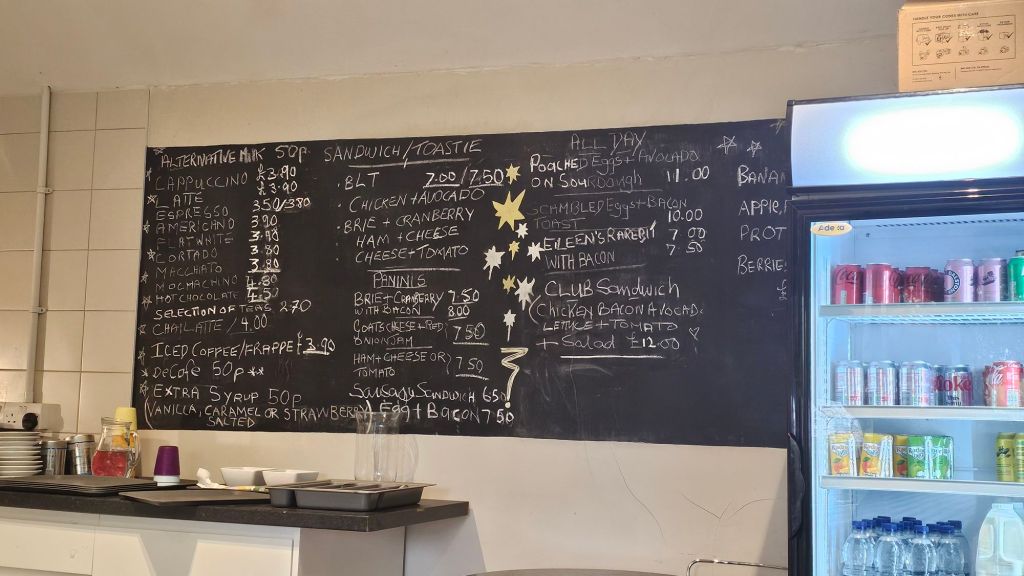 ALTERNATIVE MILK 50p
CAPPUCCINO £3.90
LATTE £3.90
ESPRESSO 350/380
AMERICANO 390
FLATWHITE 3.90
CORTADO 3.80
MACCHIATO 3.80
MOCMACHINO 4.80
HOT CHOCOLATE 4.50
SELECTION OF TEAS 2.70
CHAI LATTE / 4.00
ICED COFFEE/FRAPPE £3.90
DECAFE 50p
EXTRA SYRUP 50p
VANILLA, CARAMEL OR STRAWBERRY
SALTED
SANDWICH/TOASTIE
BLT 7.00/7.50
CHICKEN + AVOCADO
BRIE + CRANBERRY
HAM + CHEESE
CHEESE + TOMATO
PANINIS
BRIE + CRANBERRY 7.50
WITH BACON 8.00
GOATSCHEESE + RED
ONION JAM 7.50
HAM + CHEESE OR 7.50
TOMATO
SAUSAGE SANDWICH 6.50
Egg + BACON 7.50
ALL DAY
POACHED Eggs + AVOCADO
ON SOURDOUGH 11.00
SCRAMBLED Eggs + BACON
TOAST 10.00
EILEEN'S RAREBIT 7.00
WITH BACON 7.50
CLUB SANDWICH
CHICKEN BACON AVOCADO
LETTUCE + TOMATO
+ Salad £12.00
BANAN
APPLE,
PROT
BERRIE
HANDLE YOUR CODES WITH CARE
Coke